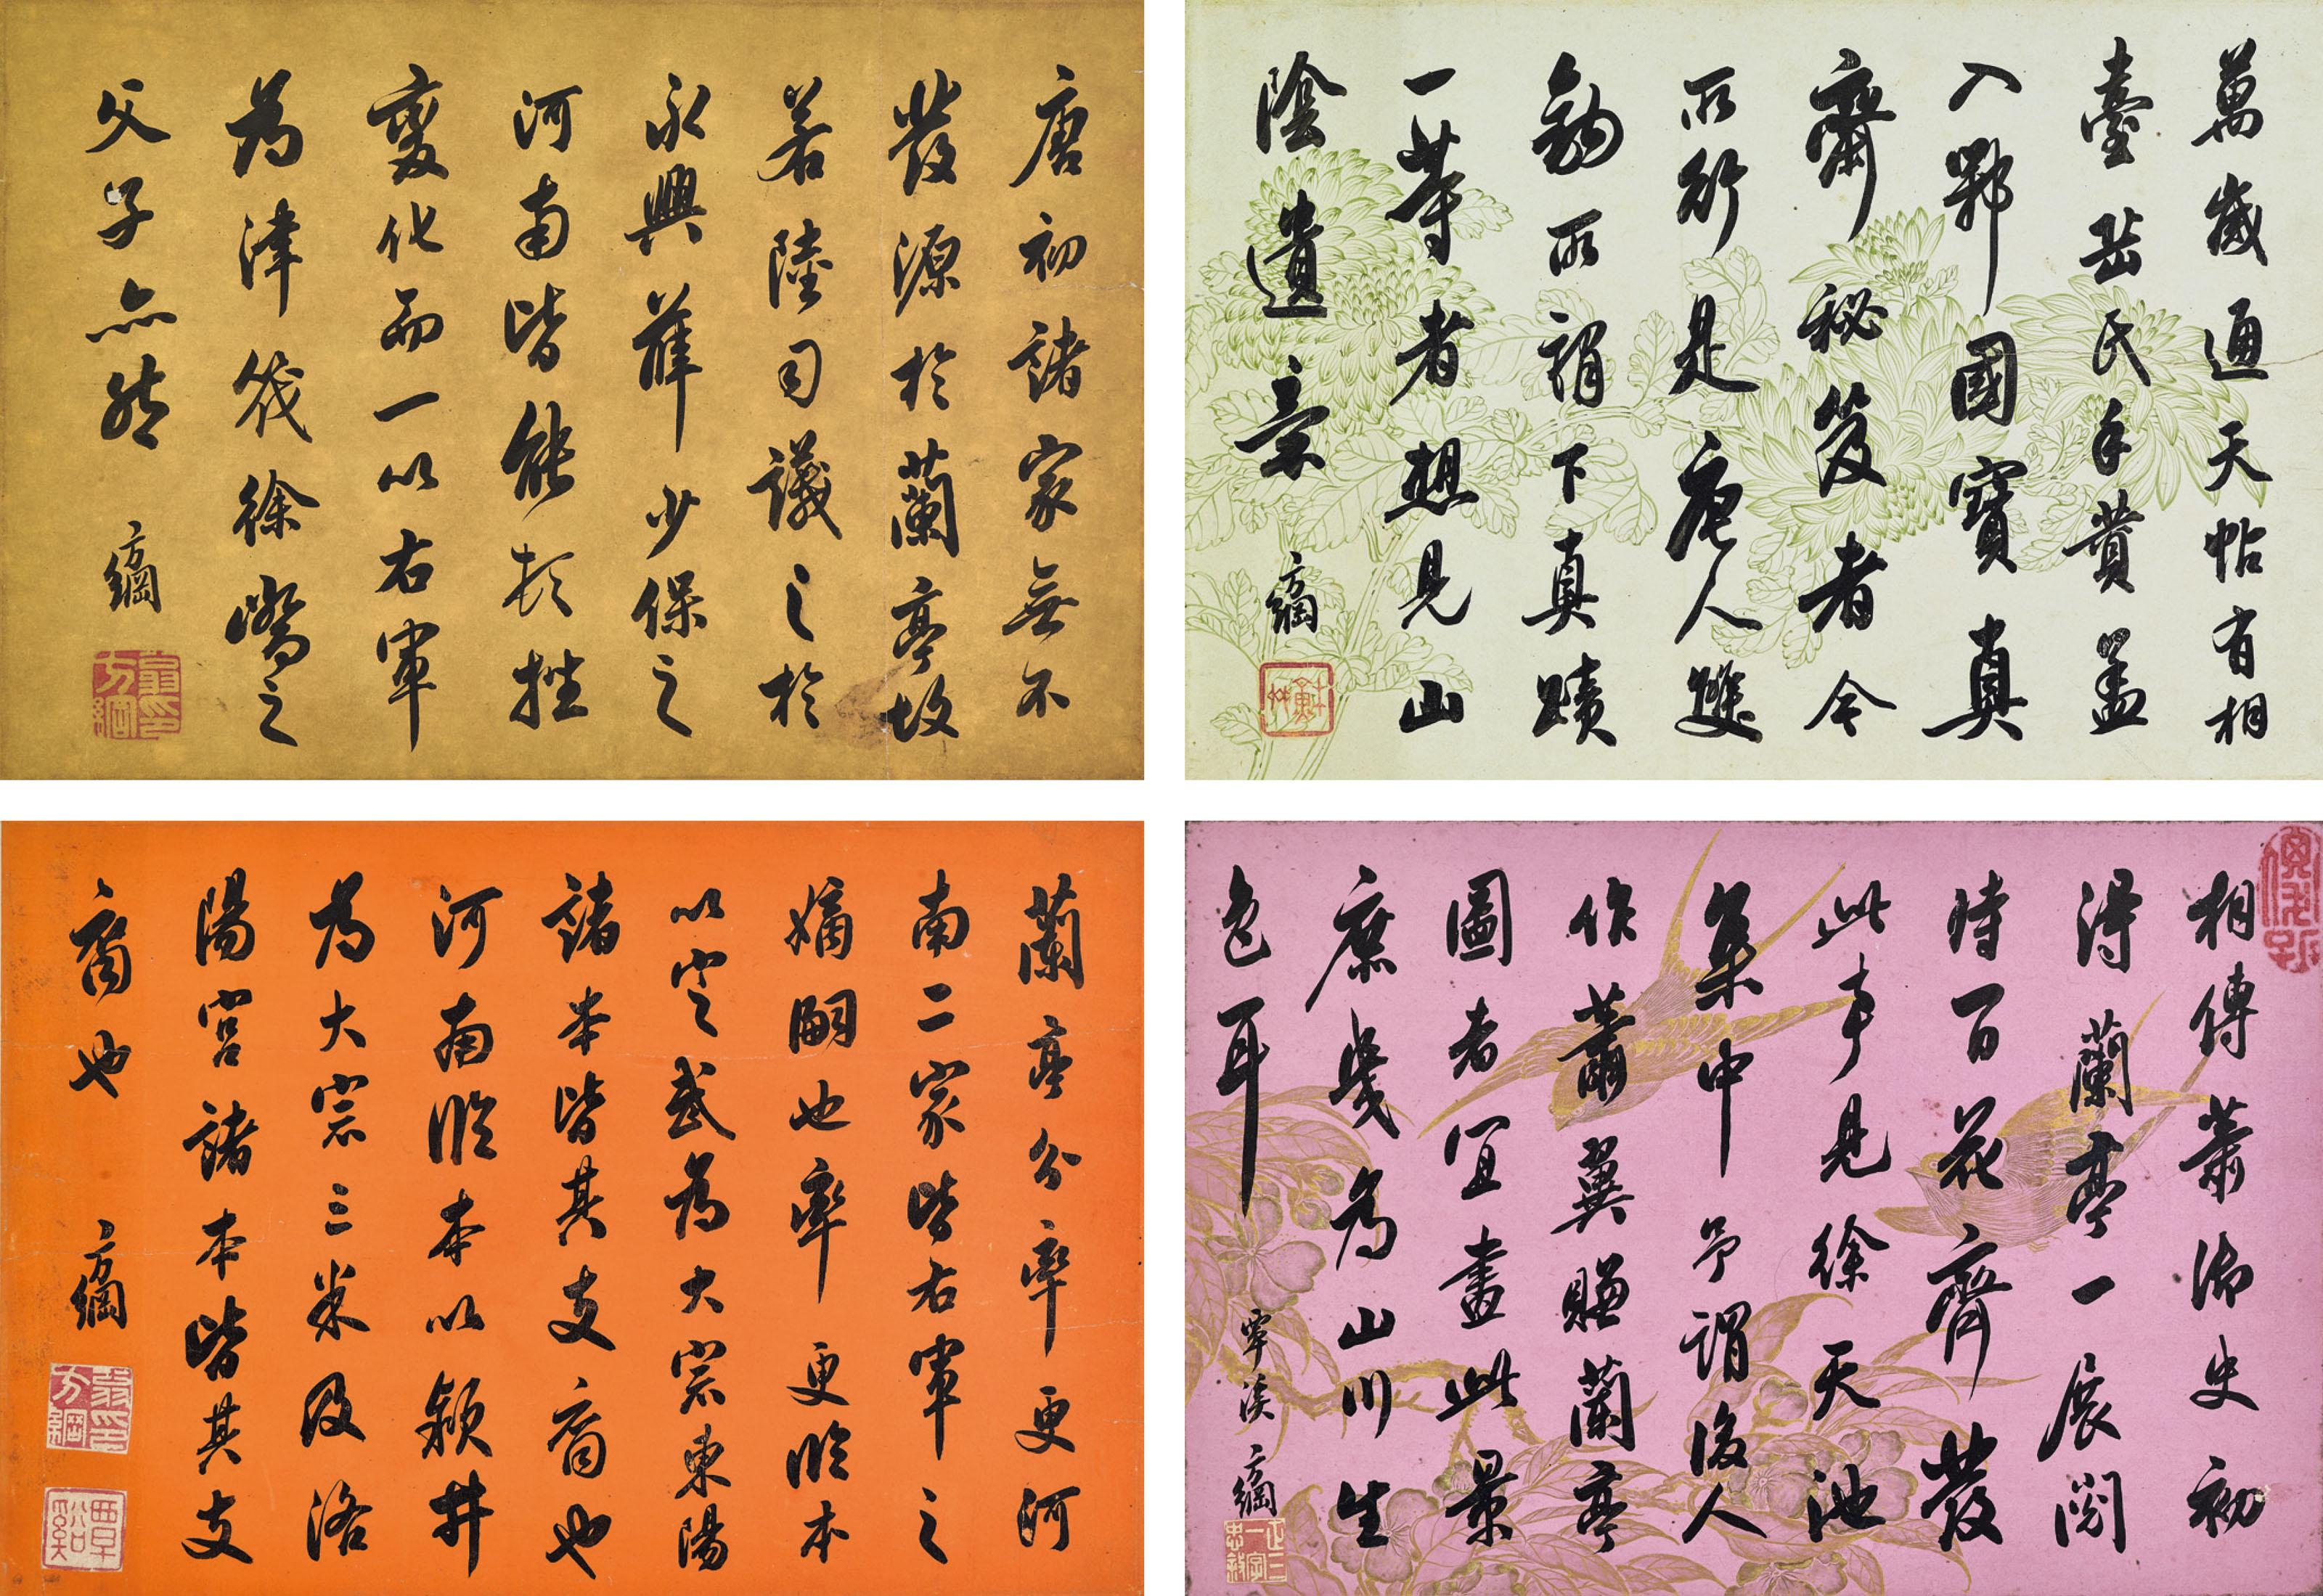 唐初諸家無不
發源於蘭亭故
若陸司議之於
永興薛少保之
河南皆能頓挫
變化而一以右軍
為津筏徐嶠之
父子亦然 方綱
翁方綱印
萬歲通天帖有相
臺岳氏手贊蓋
入鄂國寶真
齋秘笈者今
所行是唐人雙
鉤所謂下真蹟
一等者想見山
陰遺意 方綱
蘭亭分率更河
南二家皆右軍之
嫡嗣也率更臨本
以定武為大宗東陽
諸本皆其支裔也
河南臨本以穎井
為大宗三米及洛
陽宮諸本皆其支
裔也 方綱
翁方綱印
覃谿
相傳蕭御史初
得蘭亭一展閱
時百花齊發
此事見徐天池
集中予謂後人
作蕭翼賺蘭亭
圖者宜畫此景
庶幾為山川生
色耳
覃溪方綱